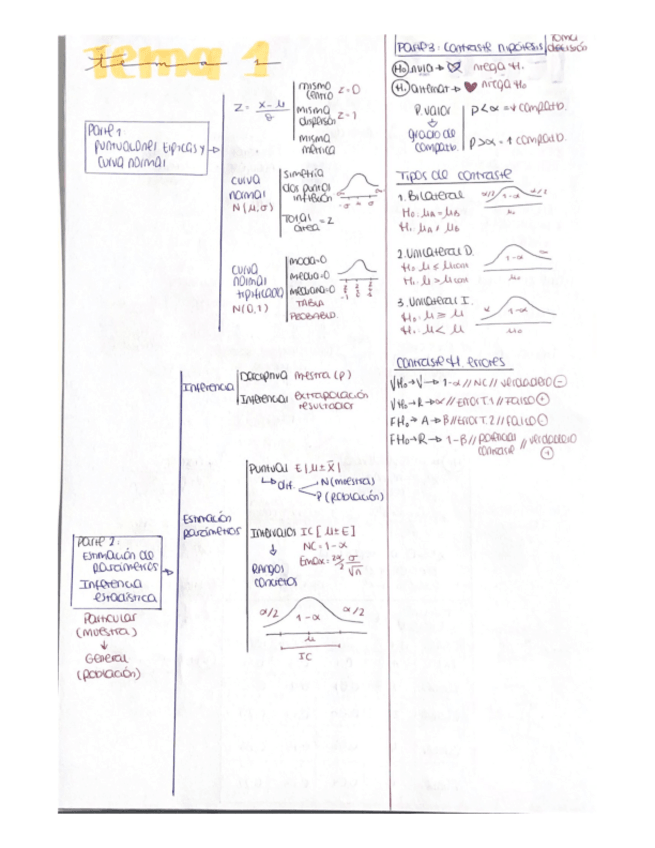 Tema 1
Parte 1
puntuaciones típicas y
curva normal
Z = x - μ / σ
mismo
centro z=0
misma
dispersión z=1
misma
métrica
curva
normal
N(μ,σ)
simetría
dos puntos
inflexión
-σ σ
Total
área = 2
curva
normal
tipificada
N(0,1)
moda=0
media=0
mediana=0
TABLA
PROBABILD.
Inferencia
Descriptiva muestra (p)
Inferencial extrapolación
resultados
Parte 2:
Estimación de
parámetros
Inferencia
estadística
Particular
(muestra)
↓
General
(población)
Estimación
parámetros
Puntual E|μ±x̄|
dif.
N(muestras)
P(población)
Intervalos IC [μ±E]
NC=1-α
Emax=
σ
√n
Rangos
concretos
α/2 1-α α/2
μ
IC
Parte 3: Contraste hipótesis
Toma
decisión
H₀ nula →
niega H₁
H₁ alternat →
niega H₀
P.valor
↓
grado de
compatb.
p<α =
compatb.
p>α = 1 compatb.
Tipos de contraste
1. Bilateral
H₀: μA = μB
H₁ μA ≠ μB
α/2 1-α α/2
μ₀
2. Unilateral D.
H₀ μ ≤
H₁ μ >
1-α
μ₀
3. Unilateral I.
H₀: μ ≥ μ
H₁: μ < μ
α 1-α
μ₀
Contraste H. errores
VH₀→V→ 1-α // NC // verdadero ⊖
VH₀→R→ α // Error T.1 // Falso ⊕
FH₀→A→ B // Error T.2 // Falso ⊖
FH₀→R→ 1-B // potencial
contraste
// verdadero
⊕